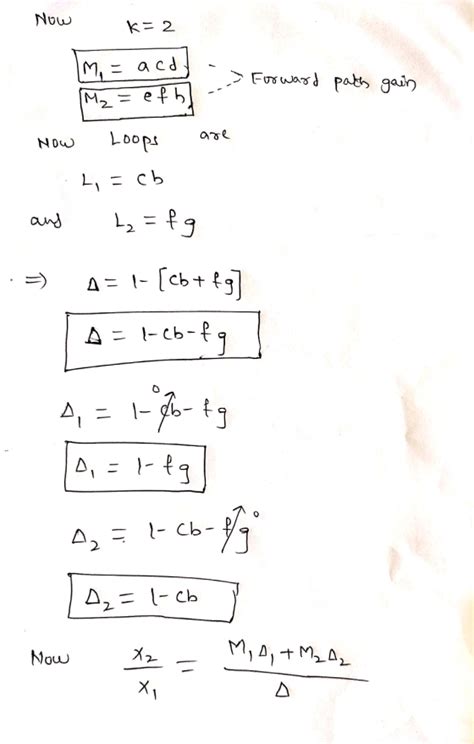 Now K = 2
M₁ = acd
M₂ = efh
---> Forward path gain
Now Loops are
L₁ = cb
and L₂ = fg
⇒ Δ = 1 - [cb + fg]
Δ = 1 - cb - fg
Δ₁ = 1 - cb⁰ - fg
Δ₁ = 1 - fg
Δ₂ = 1 - cb - fg⁰
Δ₂ = 1 - cb
Now x₂/x₁ = (M₁Δ₁ + M₂Δ₂)/Δ